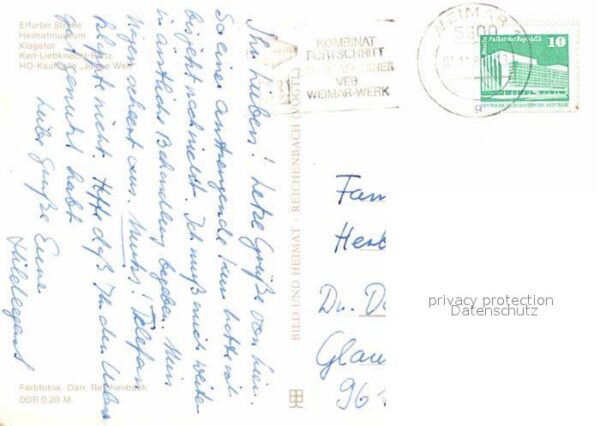 Erfurter Straße
Heimatmuseum
Klagetor
Karl-Liebknecht-Platz
HO-Kaufhalle „Junge Welt
Ihr Lieben! Letzte Grüße von hier.
So eine anstrengende Kur hatte ich
bis jetzt noch nicht. Ich muß mich weiter
in ärztliche Behandlung begeben. Mein
scheint aus. Telefon
klappt nicht. Hoffe daß Ihr den Urlaub
gut genutzt habt
Liebe Grüße Eure
Hildegard
Farbfotos Darr, Reichenbach
DDR 0,20 M
BILD UND HEIMAT · REICHENBACH (VOGTL)
KOMBINAT
FORTSCHRITT
VEB
WEIMAR-WERK
WEIMAR
5300
Berlin Palast der Republik
10
DEUTSCHE DEMOKRATISCHE REPUBLIK
Fam
Herb
Dr. Do
Glau
961
privacy protection
Datenschutz